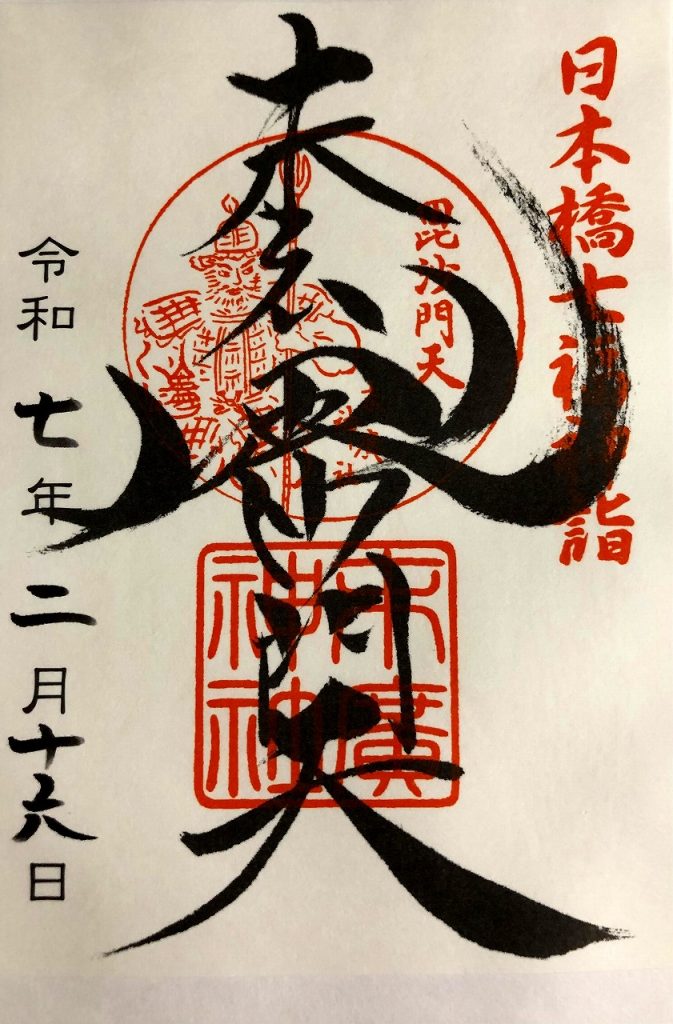 日本橋七福神詣
毘沙門天
毘沙門天
末廣
神社
令和七年二月十六日